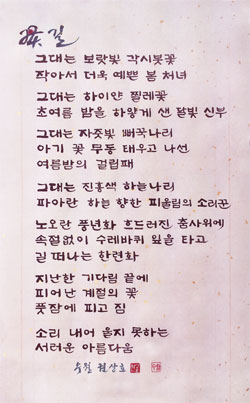 꽃길
그대는 보랏빛 각시붓꽃
작아서 더욱 예쁜 봄 처녀
그대는 하이얀 찔레꽃
초여름 밤을 하얗게 샌 달빛 신부
그대는 자줏빛 뻐꾹나리
아기 꽃 무동 태우고 나선
여름밤의 걸립패
그대는 진홍색 하늘나리
파아란 하늘 향한 피울림의 소리꾼
노오란 풍년화 흐드러진 춤사위에
속절없이 수레바퀴 잎을 타고
길 떠나는 한련화
지난한 기다림 끝에
피어난 계절의 꽃
풋잠에 피고 짐
소리 내어 울지 못하는
서러운 아름다움
권상호